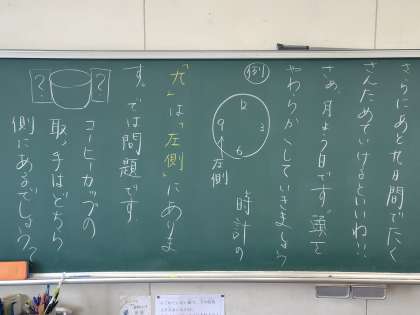 さらにあと九日間でたく
さんためていけるといいね!!
さあ、月よう日です。頭を
やわらかくしていきましょう
例
12
3
6
9
左側
時計の
「九」は「左側」にありま
す。では問題です
コーヒーカップの
取っ手はどちら
側にあるでしょう?
?
?